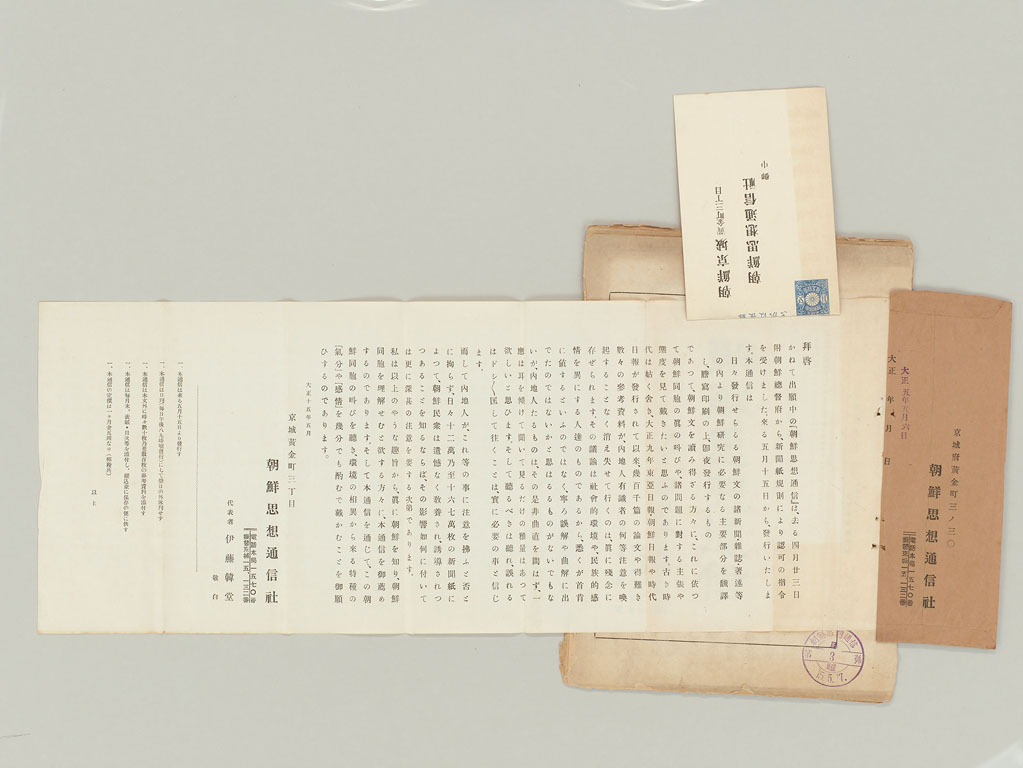 朝鮮京城黃金町三丁目
朝鮮思想通信社
御中
大正五年五月六日
大正 年 月 日
京城府黃金町三ノ三〇
朝鮮思想通信社
拜啓
かねて出願中の『朝鮮思想通信』は、去る四月廿三日
附朝鮮總督府から、新聞紙規則により認可の指令
を受けました。來る五月十五日から、發行いたしま
す。本通信は
日々發行せらるる朝鮮文の諸新聞・雜誌著述等
の內より朝鮮研究に必要なる主要部分を飜譯
し、謄寫印刷の上、卽夜發行するもの
であつて、朝鮮文を讀み得ざる方々に、これに依つ
て朝鮮同胞の眞の叫びや、諸問題に對する主張や
態度を見て戴きたいと思ふのであります。古き時
代は姑く舍き、大正九年東亞日報、朝鮮日報や時代
日報が發行されて以來、幾百千篇の論文や得難き
數々の參考資料が、內地人有識者の何等注意を喚
起することなく消え失せて行くのは、眞に殘念に
存ぜられます。その議論は社會的環境や、民族的感
情を異にする人達のものであるから、悉くが首肯
に値するといふのではなく、寧ろ誤解や曲解に出
でたのではないかと思はるるものがないでもな
いが、內地人たるものは、その是非曲直を問はず、一
應は耳を傾けて聞いて見るだけの雅量はあつて
欲しいと思ひます。そして聽るべきは聽れ、誤れる
はドシ〱匡して往くことは、實に必要の事と信じ
ます。
而して內地人が、これ等の事に注意を拂ふと否と
に拘らず、日々十二萬乃至十六七萬枚の新聞紙に
よつて、朝鮮民衆は遺憾なく敎養され、誘導されつ
つあることを知るならば、その影響如何に付いて
は更に深甚の注意を要する次第であります。
私は以上のやうな趣旨から、眞に朝鮮を知り、朝鮮
同胞を理解せむと欲する方々に、本通信を御薦め
するのであります。そして本通信を通じて、この朝
鮮同胞の叫びを聽き、環境の相異から來る特種の
『氣分』や『感情』を幾分でも酌むで戴かむことを御願
ひするのであります。
大正十五年五月
京城黃金町三丁目
朝鮮思想通信社
電話本局一五七〇番
代表者 伊藤韓堂
敬白
一、本通信は來る五月十五日より發行す
以上
3
15.5.7.